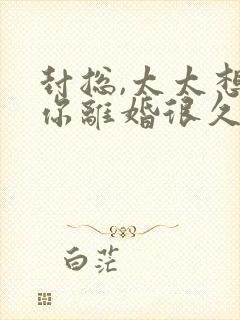 封总,太太想
你離婚很久
白茫